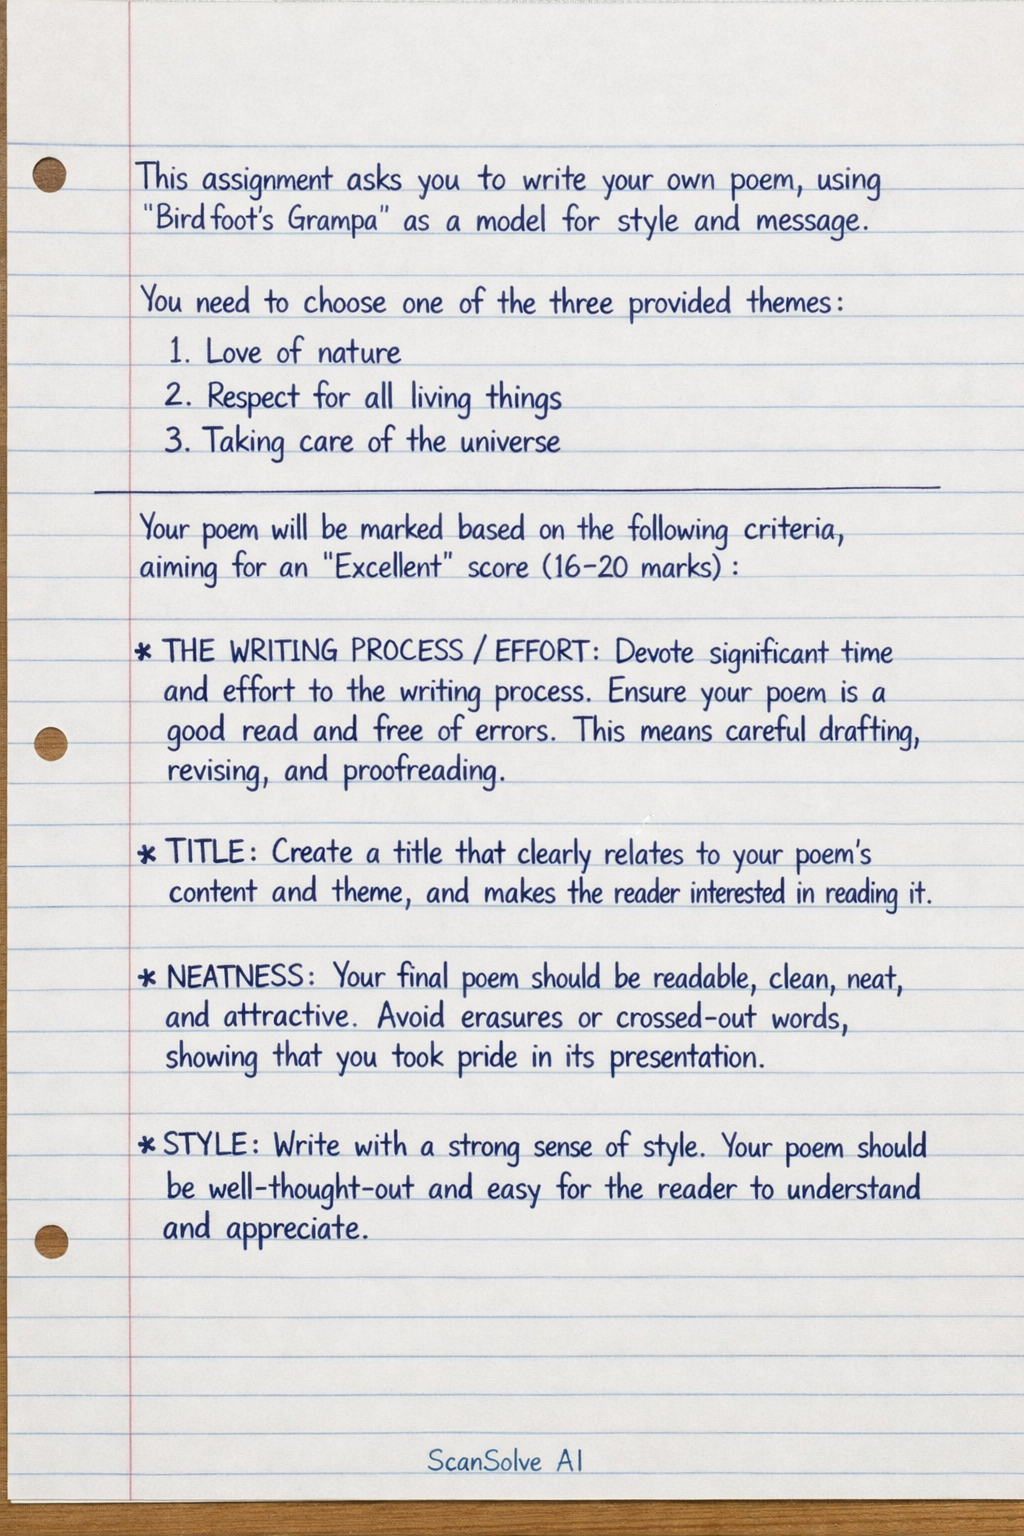 This assignment asks you to write your own poem, using
"Birdfoot's Grampa" as a model for style and message.
You need to choose one of the three provided themes:
1. Love of nature
2. Respect for all living things
3. Taking care of the universe
Your poem will be marked based on the following criteria,
aiming for an "Excellent" score (16-20 marks):
* THE WRITING PROCESS / EFFORT: Devote significant time
and effort to the writing process. Ensure your poem is a
good read and free of errors. This means careful drafting,
revising, and proofreading.
* TITLE: Create a title that clearly relates to your poem's
content and theme, and makes the reader interested in reading it.
* NEATNESS: Your final poem should be readable, clean, neat,
and attractive. Avoid erasures or crossed-out words,
showing that you took pride in its presentation.
* STYLE: Write with a strong sense of style. Your poem should
be well-thought-out and easy for the reader to understand
and appreciate.
ScanSolve AI